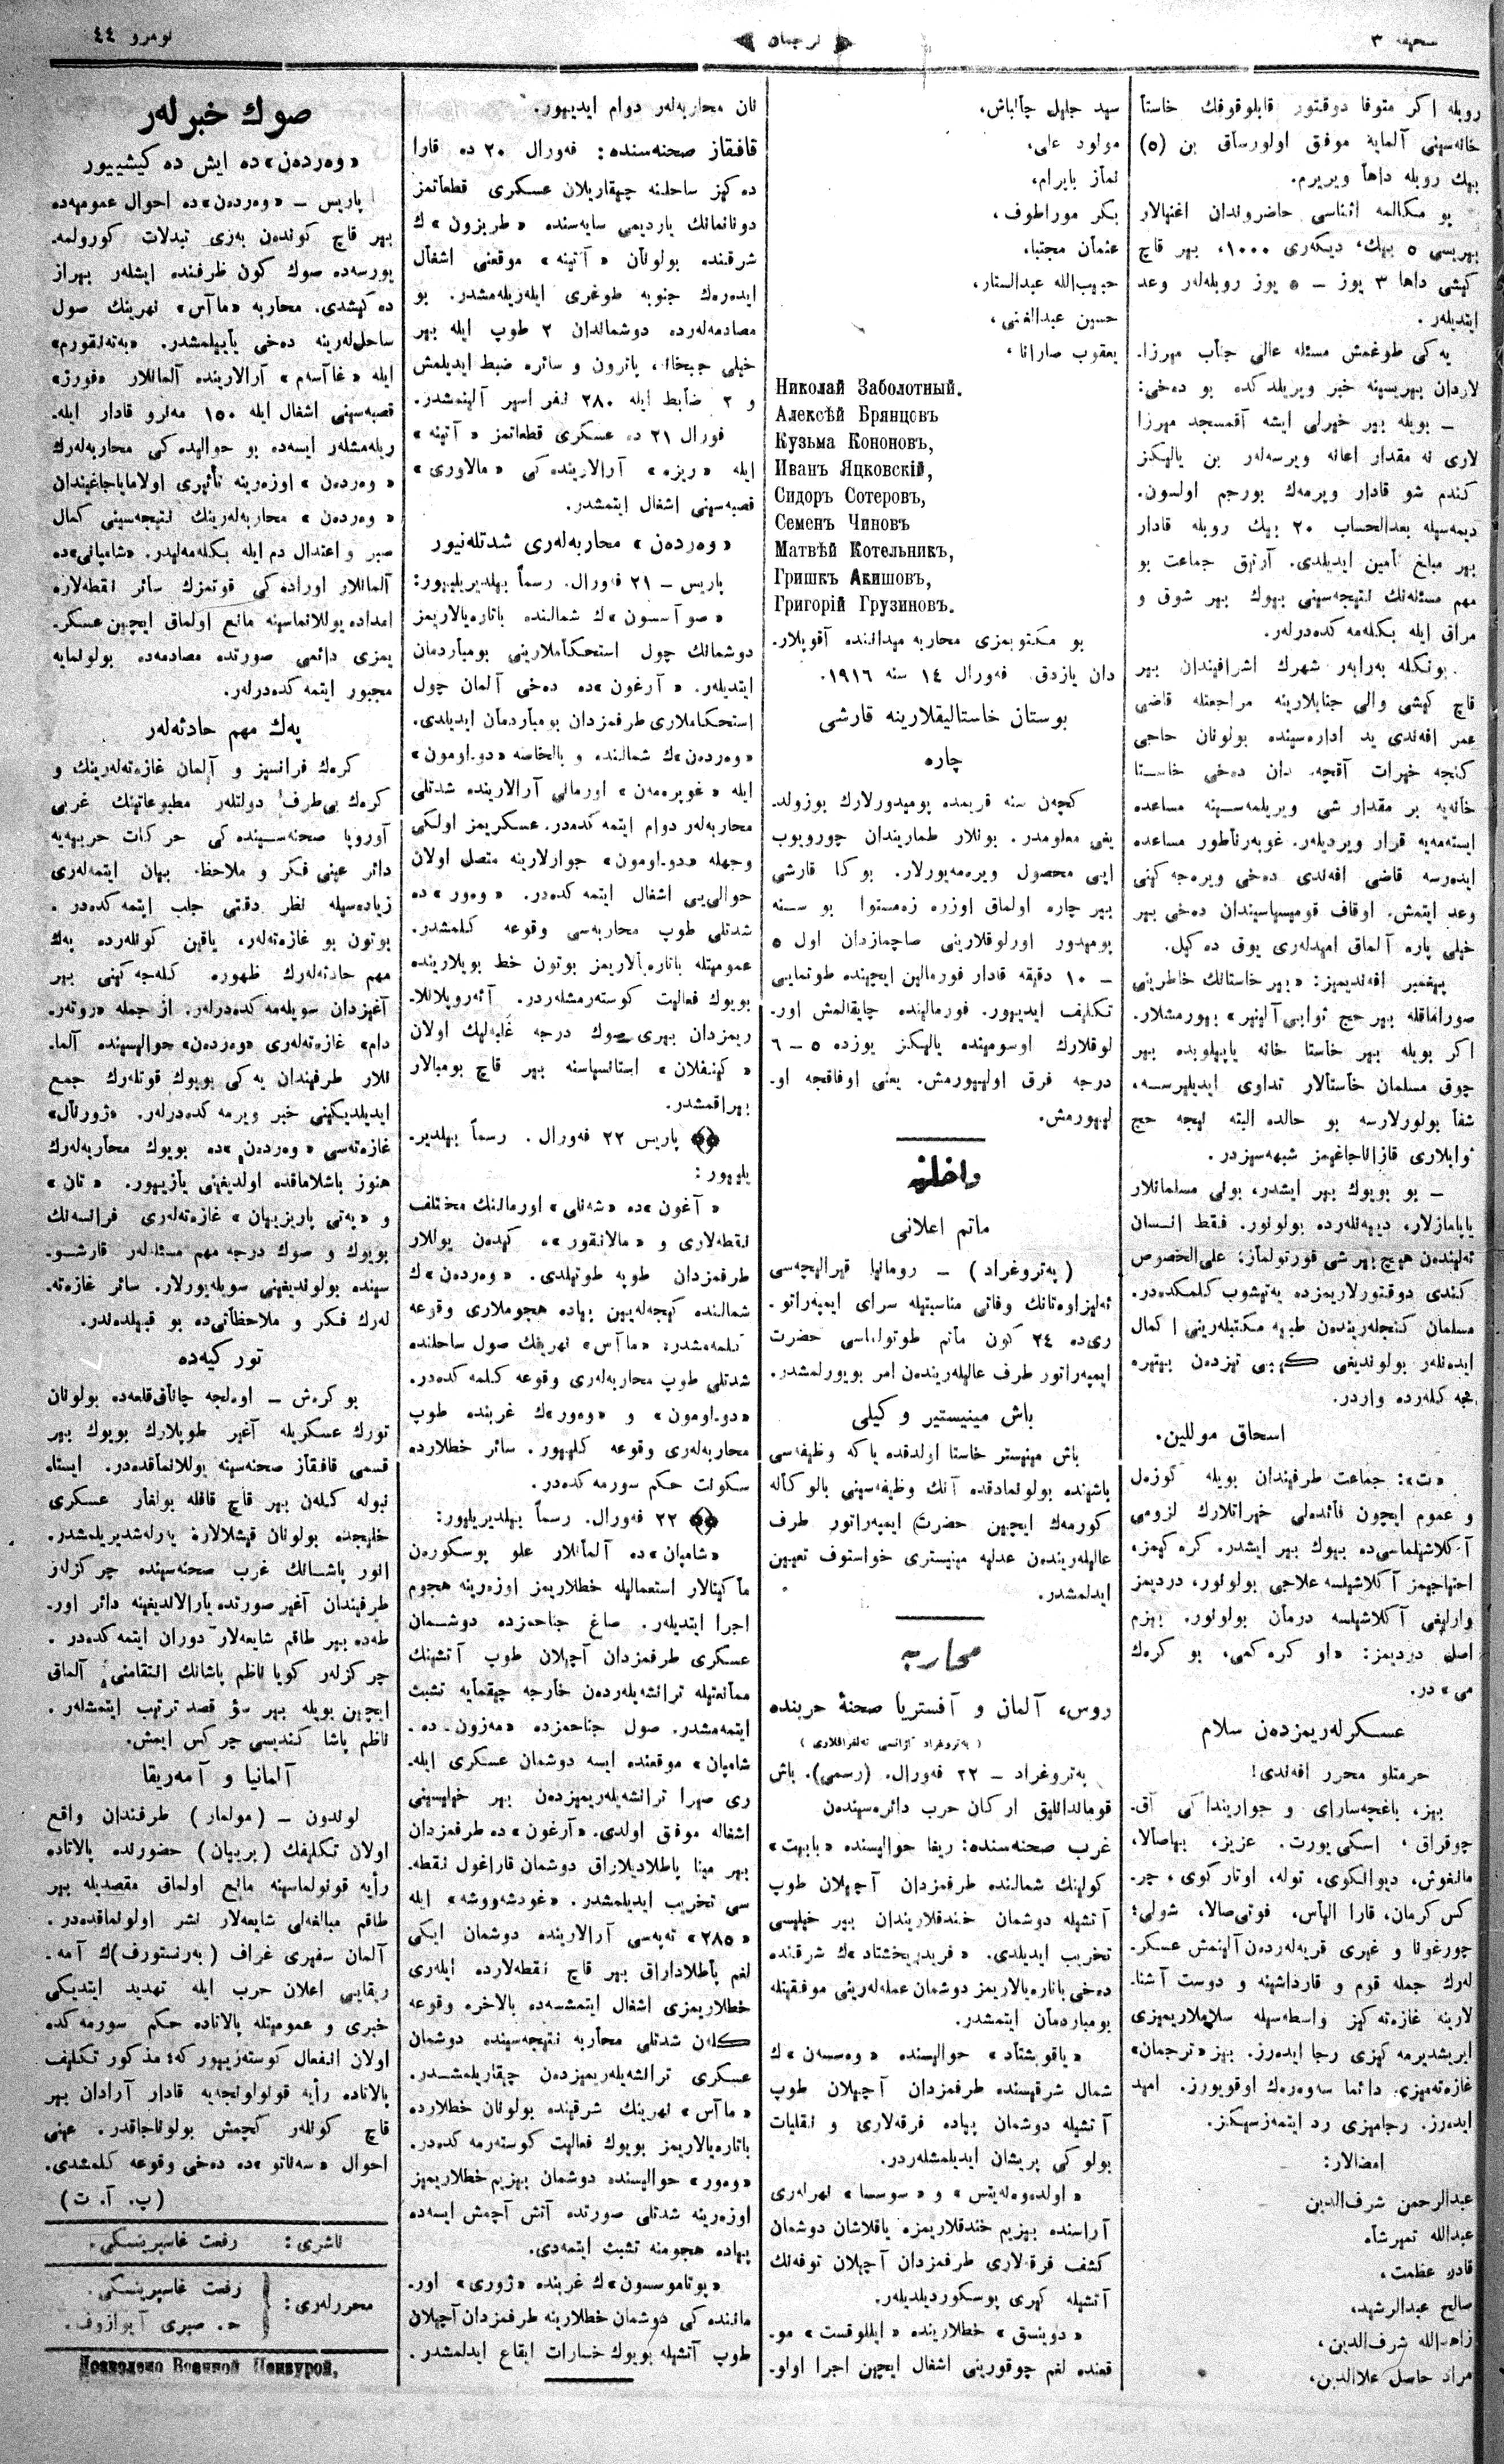 صحیفه ٣
ترجمان
نومرو ٤٤
روبله اكر متوفا دوقتور قابلوقوفك خاستا
خانه‌سینی آلمایه موفق اولورساق بن (٥)
بیك روبله داها ویریرم.
بو مكالمه اثناسی حاضروندان اغنیالار
بهریسی ٥ بیك، دیكه‌ری ١٠٠٠، بیر قاچ
كیشی داها ٣ یوز ــ ٥ یوز روبله‌لر وعد
ایتدیلر.
یه‌كی طوغمش مسئله عالی جناب میرزا.
لاردان بهریسینه خبر ویریلدكده بو ده‌خی:
ــ بویله بیر خیرلی ایشه آقمسجد میرزا
لاری نه مقدار اعانه ویرسه‌لر بن یالیكز
كندم شو قادار ویرمه‌ك بورجم اولسون.
دیمه‌سیله بعدالحساب ٢٠ بیك روبله قادار
بیر مبلغ تأمین ایدیلدی. آرتیق جماعت بو
مهم مسئله‌نك نتیجه‌سینی بیوك بیر شوق و
مراق ایله بكله‌مه كده‌درلر.
بونكله به‌رابه‌ر شهرك اشرافیندان بیر
قاچ كیشی والی جنابلارینه مراجعتله قاضی
عمر افه‌ندی ید اداره‌سینده بولونان حاجی
كنجه خیرات آقچه‌سندان ده‌خی خاستا
خانه‌یه بر مقدار شی ویریلمه‌سینه مساعده
ایسته‌مه‌یه قرار ویردیلر. غوبه‌رناطور مساعده
ایده‌رسه قاضی افه‌ندی ده‌خی ویره‌جه كینی
وعد ایتمش. اوقاف قومیسیاسیندان ده‌خی بیر
خیلی پاره آلماق امیدله‌ری یوق ده‌كیل.
پیغمبر افه‌ندیمیز: «بیر خاستانك خاطرینی
صوراماقله بیر حج ثوابی آلینیر» بیورمشلار.
اكر بویله بیر خاستا خانه یاپیلوبده بیر
چوق مسلمان خاستالار تداوی ایدیلیرسه،
شفا بولورلارسه بو حالده البته نیجه حج
ثوابلاری قازاناجاغیمز شبهه‌سیزدر.
ــ بو بویوك بیر ایشدر، بونی مسلمانلار
یاپامازلار، دییه‌نلرده بولونور. فقط انسان
ته‌لیندن هیچ بیر شی قورتولماز؛ علی‌الخصوص
كندی دوقتورلاریمزده یه‌تیشوب كلمكده‌در.
مسلمان كنجله‌ریندن طبیه مكتبلرینی اكمال
ایده‌نلر بولوندیغی كیبی تیزدن بیتیره
جه كلرده واردر.
اسحاق موللین.
«ت»: جماعت طرفیندان بویله كوزه‌ل
و عموم ایچون فائده‌لی خیراتلارك لزومی
آكلاشیلماسی‌ده بیوك بیر ایشدر. كره كیمز،
احتیاجیمز آكلاشیلسه علاجی بولونور، دردیمز
وارلیغی آكلاشیلسه درمان بولونور. بیزم
اصل دردیمز: «او كره‌كمی، بو كره‌ك
می» در.
عسكرله‌ریمزدن سلام
حرمتلو محرر افه‌ندی!
بیز، باغچه‌سارای و جواریندا كی آق.
چوقراق، اسكی یورت. عزیز، بیاصالا،
مانغوش، دیوانكوی، توله، اوتار كوی، چر.
كس كرمان، قارا الیاس، فوتی‌صالا، شولی؛
چورغونا و غیری قریه‌لردن آلینمش عسكر.
لرك جمله قوم و قارداشینه و دوست آشنا.
لارینه غازه‌ته‌كیز واسطه‌سیله سلاملاریمیزی
ایریشدیرمه كیزی رجا ایده‌رز. بیز «ترجمان»
غازه‌ته‌میزی دائما سه‌وه‌رك اوقویورز. امید
ایده‌رز. رجامیزی رد ایتمه‌زسیكز.
امضالار:
عبدالرحمن شرف‌الدین
عبدالله تمیرشاه
قادر عظمت،
صالح عبدالرشید،
زاهدالله شرف‌الدین،
مراد حاصل علاالدین،
سید جلیل چالباش،
مولود علی،
نماز بایرام،
بكر موراطوف،
عثمان مجتبا،
حبیب‌الله عبدالستار،
حسین عبدالغنی،
یعقوب صارانا،
Николай Заболотный.
Алексѣй Брянцовъ
Кузьма Кононовъ,
Иванъ Яцковскій,
Сидоръ Сотеровъ,
Семенъ Чиновъ
Матвѣй Котельникъ,
Гришкъ Акишовъ,
Григорій Грузиновъ.
بو مكتوبمزی محاربه میداننده آقوپلار.
دان یازدق. فه‌ورال ١٤ سنه ١٩١٦.
بوستان خاستالیقلارینه قارشی
چاره
كچه‌ن سنه قریمده پومیدورلارك بوزولد.
یغی معلومدر. بونلار طماریندان چورویوب
ایی محصول ویره‌مه‌یورلار. بو كا قارشی
بیر چاره اولماق اوزره زه‌مستوا بو سنه
پومیدور اورلوقلارینی صاچمازدان اول ٥
ــ ١٠ دقیقه قادار فورمالین ایچینده طوتمایی
تكلیف ایدییور. فورمالینده چایقالمش اور.
لوقلارك اوسومینده یالیكز یوزده ٥ ــ ٦
درجه فرق اولییورمش. یعنی اوفاقجه او.
لییورمش.
داخلیه
ماتم اعلانی
(په‌تروغراد) ــ رومانیا قیرالیچه‌سی
ئه‌لیزاوه‌تانك وفاتی مناسبتیله سرای ایمپه‌راتو.
ری‌ده ٢٤ كون ماتم طوتولماسی حضرت
ایمپه‌راتور طرف عالیله‌ریندن امر بویورلمشدر.
باش مینیستیر وكیلی
باش مینیستر خاستا اولدقده یاكه وظیفه‌سی
باشینده بولونمادقده آنك وظیفه‌سینی بالوكاله
كورمه‌ك ایچین حضرت ایمپه‌راتور طرف
عالیله‌ریندن عدلیه مینیستری خواستوف تعیین
ایدلمشدر.
محاربه
روس، آلمان و آفستریا صحنهٔ حربنده
(په‌تروغراد آژانسی ته‌لغرافلاری)
په‌تروغراد ــ ٢٢ فه‌ورال. (رسمی). باش
قوماندانلیق اركان حرب دائره‌سیندن
غرب صحنه‌سنده: ریغا حوالیسنده «بابیت»
كولینك شمالنده طرفمزدان آچیلان طوپ
آتشیله دوشمان خندقلاریندان بیر خیلیسی
تخریب ایدیلدی. «فریدریخشتاد»ك شرقنده
ده‌خی باتاره‌یالاریمز دوشمان عمله‌له‌رینی موفقیتله
بومباردمان ایتمشدر.
«یاقوبشتاد» حوالیسنده «وه‌سسه‌ن»ك
شمال شرقیسنده طرفمزدان آچیلان طوپ
آتشیله دوشمان پیاده فرقه‌لاری و نقلیات
بولوكی پریشان ایدیلمشله‌ردر.
«اولده‌وه‌له‌یتس» و «سوسسا» نهرله‌ری
آراسنده بیزیم خندقلاریمزه یاقلاشان دوشمان
كشف فرقه‌لاری طرفمزدان آچیلان توفه‌نك
آتشیله كیری پوسكوردیلدیلر.
«دوینسق» خطلارینده «ایللوقست» مو.
قعنده لغم چوقورینی اشغال ایچین اجرا اولو.
نان محاربه‌لر دوام ایدییور.
قافقاز صحنه‌سنده: فه‌ورال ٢٠ ده قارا
ده كیز ساحلنه چیقاریلان عسكری قطعاتمز
دونانمانك یاردیمی سایه‌سنده «طربزون»ك
شرقنده بولونان «آتینه» موقعنی اشغال
ایده‌ره‌ك جنوبه طوغری ایله‌ریله‌مشدر. بو
مصادمه‌لرده دوشماندان ٢ طوپ ایله بیر
خیلی جبخانا، پاترون و سائره ضبط ایدیلمش
و ٢ ضابط ایله ٢٨٠ نفر اسیر آلینمشدر.
فورال ٢١ ده عسكری قطعاتمز «آتینه»
ایله «ریزه» آرالارینده كی «مالاوری»
قصبه‌سینی اشغال ایتمشدر.
«وه‌ردن» محاربه‌له‌ری شدتله‌نیور
پاریس ــ ٢١ فه‌ورال. رسماً بیلدیریلییور:
«صوآسسون»ك شمالنده باتاره‌یالاریمز
دوشمانك چول استحكاملارینی بومباردمان
ایتدیلر. «آرغون»ده ده‌خی آلمان چول
استحكاملاری طرفمزدان بومباردمان ایدیلدی.
«وه‌ردن»ك شمالنده و بالخاصه «دو.اومون»
ایله «غوبره‌مه‌ن» اورمانی آرالارینده شدتلی
محاربه‌لر دوام ایتمه كده‌در. عسكریمز اولكی
وجهله «دو.اومون» جوارلارینه متصل اولان
حوالی‌یی اشغال ایتمه كده‌در. «وه‌ور»ده
شدتلی طوپ محاربه‌سی وقوعه كلمشدر.
عمومیتله باتاره‌یالاریمز بوتون خط بویلارینده
بویوك فعالیت كوسته‌رمشله‌ردر. آئه‌روپلانلا.
ریمزدان بیری صوك درجه غلبه‌لیك اولان
«كینفلان» استانسیاسنه بیر قاچ بومبالار
بیراقمشدر.
پاریس ٢٢ فه‌ورال. رسماً بیلدیر.
یلییور:
«آغون»ده «شه‌نلی» اورمانك مختلف
نقطه‌لاری و «مالانقور»ه كیده‌ن یوللار
طرفمزدان طوپه طوتیلدی. «وه‌ردن»ك
شمالنده كیجه‌له‌یین پیاده هجوملاری وقوعه
كلمه‌مشدر. «ماآس» نهرینك صول ساحلنده
شدتلی طوپ محاربه‌له‌ری وقوعه كلمه كده‌در.
«دو.اومون» و «وه‌ور»ك غربنده طوپ
محاربه‌له‌ری وقوعه كلییور. سائر خطلارده
سكونت حكم سورمه كده‌در.
٢٢ فه‌ورال. رسماً بیلدیریلییور:
«شامپان»ده آلمانلار علو پوسكوره‌ن
ماكینالار استعمالیله خطلاریمز اوزه‌رینه هجوم
اجرا ایتدیلر. صاغ جناحمزده دوشمان
عسكری طرفمزدان آچیلان طوپ آتشینك
ممانعتیله ترانشه‌یله‌ردن خارجه چیقمایه تشبث
ایتمه‌مشدر. صول جناحمزده «مه‌زون.ده.
شامپان» موقعنده ایسه دوشمان عسكری ایله.
ری صیرا ترانشه‌یله‌ریمیزدن بیر خیلیسینی
اشغاله موفق اولدی. «آرغون»ده طرفمزدان
بیر مینا پاطلادیلاراق دوشمان قاراغول نقطه.
سی تخریب ایدیلمشدر. «غودشه‌ووشه» ایله
«٢٨٥» ته‌په‌سی آرالارینده دوشمان ایكی
لغم پاطلاداراق بیر قاچ نقطه‌لارده ایله‌ری
خطلاریمزی اشغال ایتمشسه‌ده بالاخره وقوعه
كله‌ن شدتلی محاربه نتیجه‌سینده دوشمان
عسكری ترانشه‌یله‌ریمیزدن چیقاریلمشدر.
«ماآس» نهرینك شرقینده بولونان خطلارده
باتاره‌یالاریمز بویوك فعالیت كوسته‌رمه كده‌در.
«وه‌ور» حوالیسنده دوشمان بیزیم خطلاریمیز
اوزه‌رینه شدتلی صورتده آتش آچمش ایسه‌ده
پیاده هجومنه تشبث ایتمه‌دی.
«پوتاموسسون»ك غربنده «ژوری» اور.
ماننده كی دوشمان خطلارینه طرفمزدان آچیلان
طوپ آتشیله بویوك خسارات ایقاع ایدلمشدر.
صوك خبرله‌ر
«وه‌ردن»ده ایش ده كیشییور
پاریس ــ «وه‌ردن»ده احوال عمومیه‌ده
بیر قاچ كوندن به‌ری تبدلات كورولمه.
یورسه‌ده صوك كون ظرفنده ایشلر بیراز
ده كیشدی. محاربه «ماآس» نهرینك صول
ساحل‌له‌رینه ده‌خی یاییلمشدر. «به‌ته‌نقورم»
ایله «غاآسه‌م» آرالارینده آلمانلار «فورژ»
قصبه‌سینی اشغال ایله ١٥٠ مه‌ترو قادار ایله.
ریله‌مشلر ایسه‌ده بو حوالیده كی محاربه‌لرك
«وه‌ردن» اوزه‌رینه تأثیری اولامایاجاغیندان
«وه‌ردن» محاربه‌له‌رینك نتیجه‌سینی كمال
صبر و اعتدال دم ایله بكله‌مه‌لیدر. «شامپانی»ده
آلمانلار اوراده كی قوتمزك سائر نقطه‌لاره
امداده یوللانماسینه مانع اولماق ایچین عسكر.
یمزی دائمی صورتده مصادمه‌ده بولونمایه
مجبور ایتمه كده‌درلر.
په‌ك مهم حادثه‌لر
كره‌ك فرانسیز و آلمان غازه‌ته‌له‌رینك و
كره‌ك بی‌طرف دولتلر مطبوعاتینك غربی
آوروپا صحنه‌سینده كی حركات حربیه‌یه
دائر عینی فكر و ملاحظه بیان ایتمه‌له‌ری
زیاده‌سیله نظر دقتی جلب ایتمه كده‌در.
بوتون بو غازه‌ته‌لر، یاقین كونلرده په‌ك
مهم حادثه‌لرك ظهوره كله‌جه كینی بیر
آغیزدان سویله‌مه كده‌درلر. ازجمله «روته‌ر.
دام» غازه‌ته‌له‌ری «وه‌ردن» حوالیسینده آلما.
نلار طرفیندان یه‌كی بویوك قوتلرك جمع
ایدیلدیكینی خبر ویرمه كده‌درلر. «ژورنال»
غازه‌ته‌سی «وه‌ردن»ده بویوك محاربه‌لرك
هنوز باشلاماقده اولدیغینی یازییور. «تان»
و «په‌تی پاریزییان» غازه‌ته‌له‌ری فرانسه‌نك
بویوك و صوك درجه مهم مسئله‌لر قارشو.
سینده بولوندیغینی سویله‌یورلار. سائر غازه‌ته.
لرك فكر و ملاحظاتی‌ده بو قبیلده‌ندر.
توركیه‌ده
بوكره‌ش ــ اوه‌لجه چاناق‌قلعه‌ده بولونان
تورك عسكریله آغیر طوپلارك بویوك بیر
قسمی قافقاز صحنه‌سینه یوللانماقده‌در. ایستا.
نبوله كله‌ن بیر قاچ قافله بولغار عسكری
خلیجده بولونان قیشلالاره یرله‌شدیریلمشدر.
انور پاشانك غرب صحنه‌سینده چركزله‌ز
طرفیندان آغیر صورتده یارالاندیغینه دائر اور.
طه‌ده بیر طاقم شایعه‌لار دوران ایتمه كده‌در.
چركزلر كویا ناظم پاشانك انتقامنی آلماق
ایچین بویله بیر سؤ قصد ترتیب ایتمشلر.
ناظم پاشا كندیسی چركس ایمش.
آلمانیا و آمه‌ریقا
لوندون ــ (مولمار) طرفندان واقع
اولان تكلیفك (برییان) حضورنده پالاتاده
رأیه قونولماسینه مانع اولماق مقصدیله بیر
طاقم مبالغه‌لی شایعه‌لار نشر اولونماقده‌در.
آلمان سفیری غراف (به‌رنستورف)ك آمه.
ریقایی اعلان حرب ایله تهدید ایتدیكی
خبری و عمومیتله پالاتاده حكم سورمه كده
اولان انفعال كوسته‌ریور كه، مذكور تكلیف
پالاتاده رأیه قونولونجه‌یه قادار آرادان بیر
قاچ كونلر كچمش بولوناجاقدر. عینی
احوال «سه‌ناتو»ده ده‌خی وقوعه كلمشدی.
(پ. آ. ت)
ناشری: رفعت غاسپرینسكی.
محررله‌ری: رفعت غاسپرینسكی.
ح. صبری آیوازوف.
Дозволено Военной Цензурой,